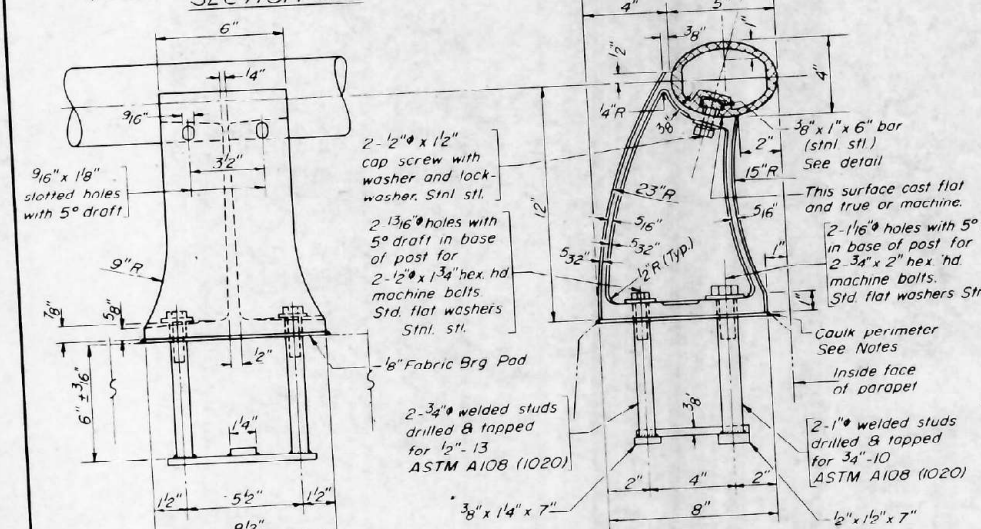 SECTION
6"
1/4"
9/16"
3 1/2"
9/16" x 1 1/8"
slotted holes
with 5° draft
9"R
7/8"
5/8"
1/2"
1/8" Fabric Brg Pad
6" ± 3/16"
1 1/4"
1 1/2"
5 1/2"
1 1/2"
8 1/2"
2-1/2" φ x 1 1/2"
cap screw with
washer and lock-
washer. Stnl stl.
2-13/16"φ holes with
5° draft in base
of post for
2-1/2"φ x 1 3/4" hex. hd
machine bolts
Std. flat washers
Stnl. stl.
2-3/4"φ welded studs
drilled & tapped
for 1/2"-13
ASTM A108 (1020)
3/8" x 1 1/4" x 7"
4"
5"
3/8"
1"
1/2"
4"
12"
1/4"R
3/8"
2"
3/8" x 1" x 6" bar
(stnl. stl.)
See detail
15"R
23"R
This surface cast flat
and true or machine.
5/16"
5/16"
5/32"
5/32"
1/2"R (Typ.)
1"
1"
2-1 1/16"φ holes with 5°
in base of post for
2-3/4" x 2" hex. hd.
machine bolts.
Std. flat washers
Caulk perimeter
See Notes
Inside face
of parapet
3/8"
2-1"φ welded studs
drilled & tapped
for 3/4"-10
ASTM A108 (1020)
2"
4"
2"
8"
1/2" x 1 1/2" x 7"